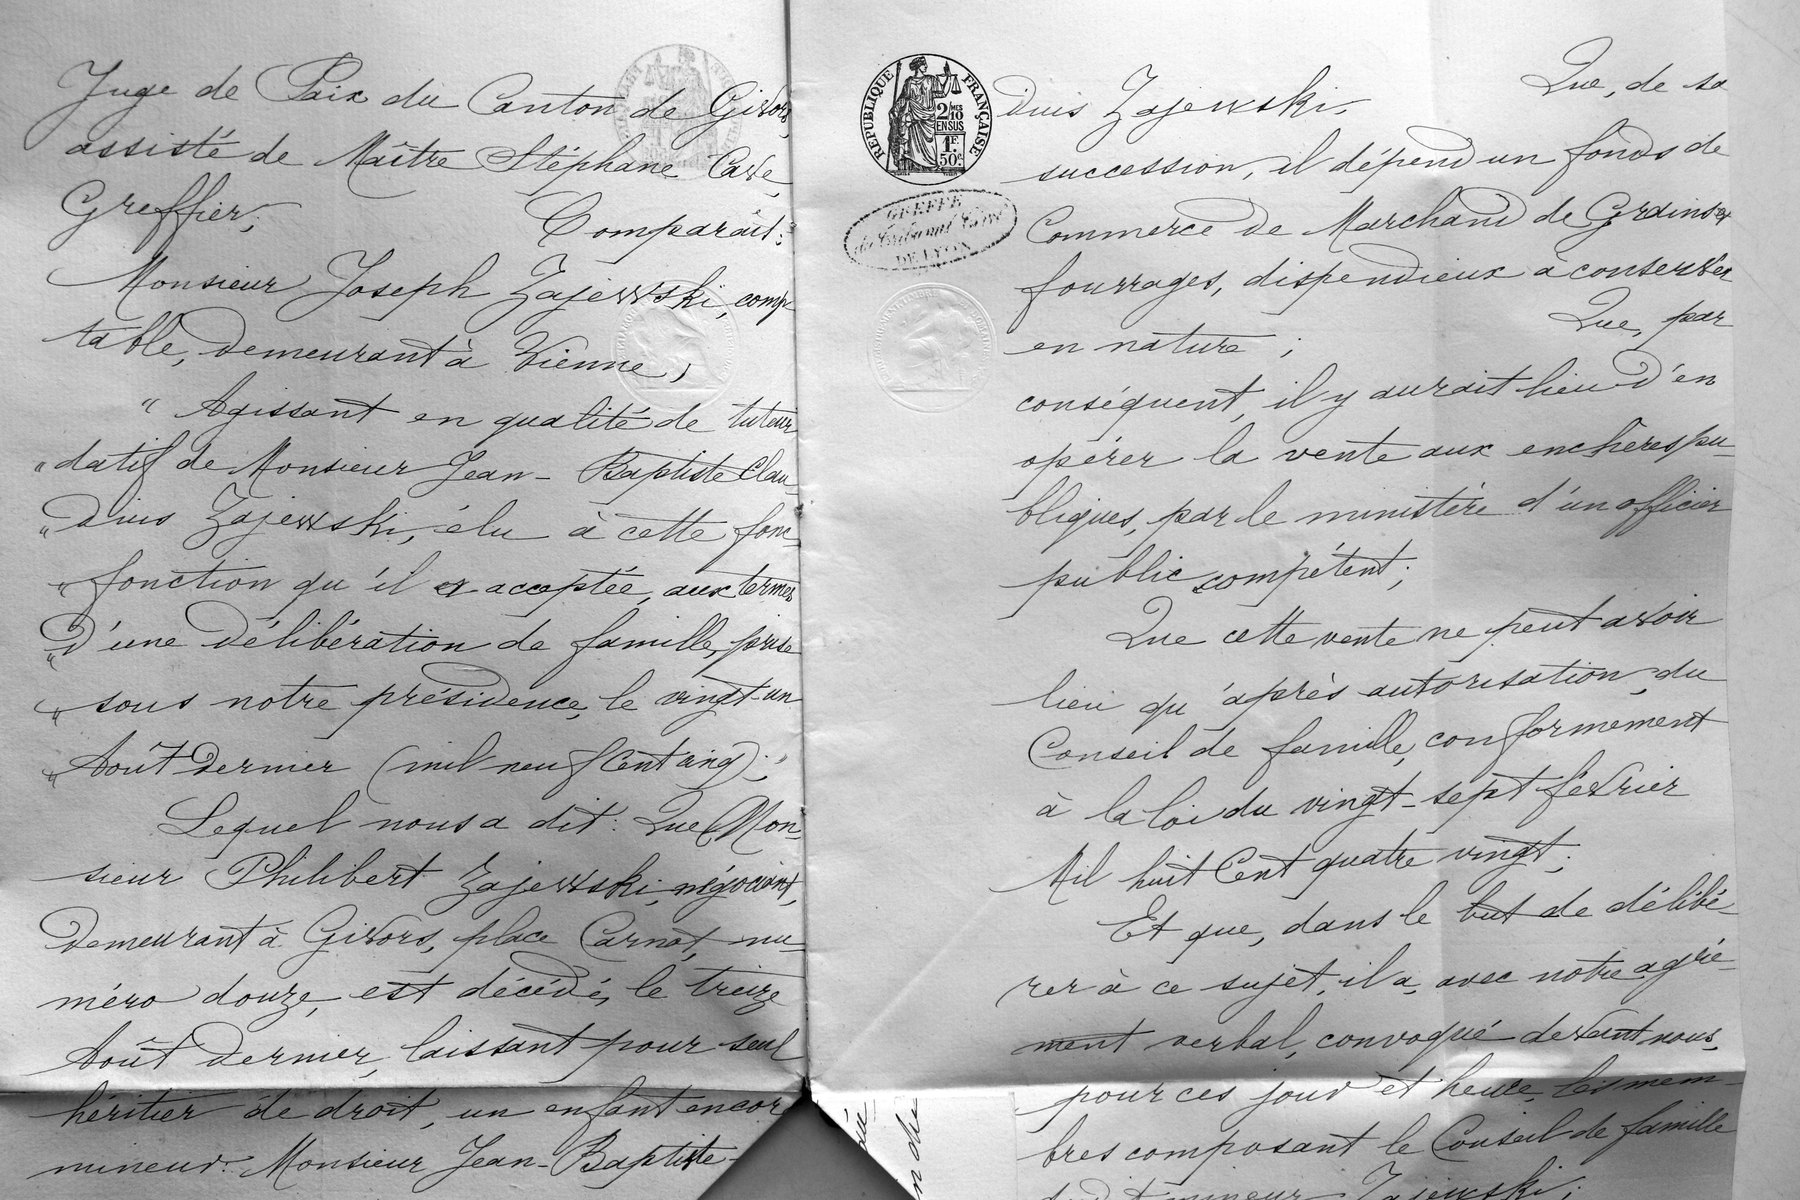 Juge de Paix du Canton de Givors,
assisté de Maître Stéphane Cave,
Greffier, Comparaît:
Monsieur Joseph Zajewski, comp
table, demeurant à Vienne,
"Agissant en qualité de tuteur
"datif de Monsieur Jean-Baptiste Clau-
"dius Zajewski, élu à cette fonc-
"fonction qu'il a acceptée, aux termes
"d'une délibération de famille, prise
"sous notre présidence, le vingt-un
"Août dernier (mil neuf cent cinq);"
Lequel nous a dit: Que Mon-
sieur Philibert Zajewski, négociant,
demeurant à Givors, place Carnot, nu-
méro douze, est décédé, le treize
Août dernier, laissant pour seul
héritier de droit, un enfant encor
mineur: Monsieur Jean-Baptiste-
RÉPUBLIQUE FRANÇAISE
2/10MES
EN SUS
1F.
50c.
GREFFE
du Tribunal Civil
DE LYON
dius Zajewski, Que, de sa
succession, il dépend un fonds de
Commerce de Marchand de Grains et
fourrages, dispendieux à conserver
en nature; Que, par
conséquent, il y aurait lieu d'en
opérer la vente aux enchères pu-
bliques, par le ministère d'un officier
public compétent;
Que cette vente ne peut avoir
lieu qu'après autorisation du
Conseil de famille, conformement
à la loi du vingt-sept février
Mil huit Cent quatre vingt;
Et que, dans le but de délibé-
rer à ce sujet, il a, avec notre agré-
ment verbal, convoqué devant nous,
pour ces jour et heure, les mem-
bres composant le Conseil de famille
dudit mineur Zajewski;